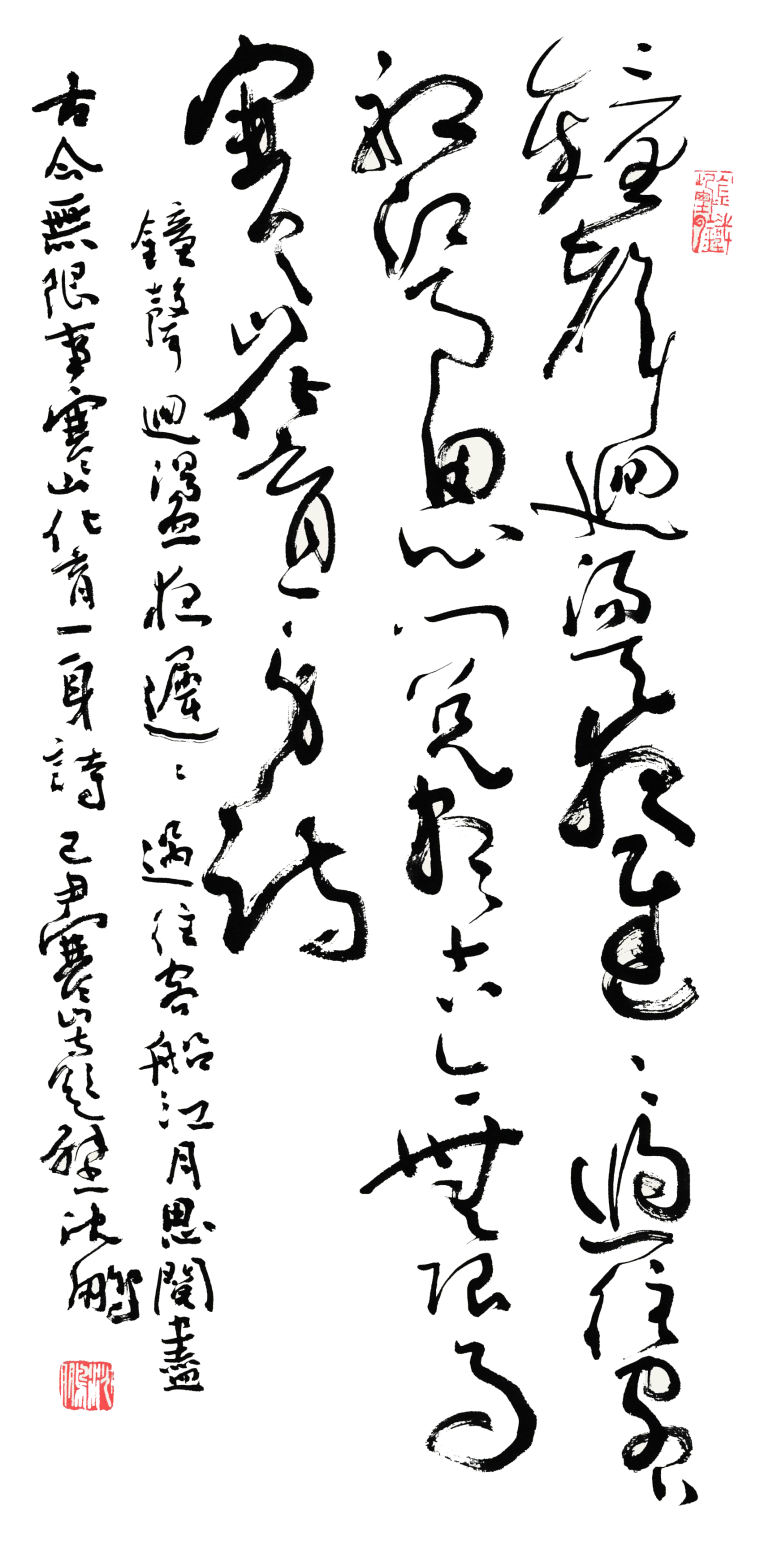 鐘聲迴盪夜遲〻過往客
船江月思閱盡古今無限事
寒山化育一身詩
鐘聲迴盪夜遲〻過往客船江月思閱盡
古今無限事寒山化育一身詩己丑寒山寺題壁沈鵬
沈鵬